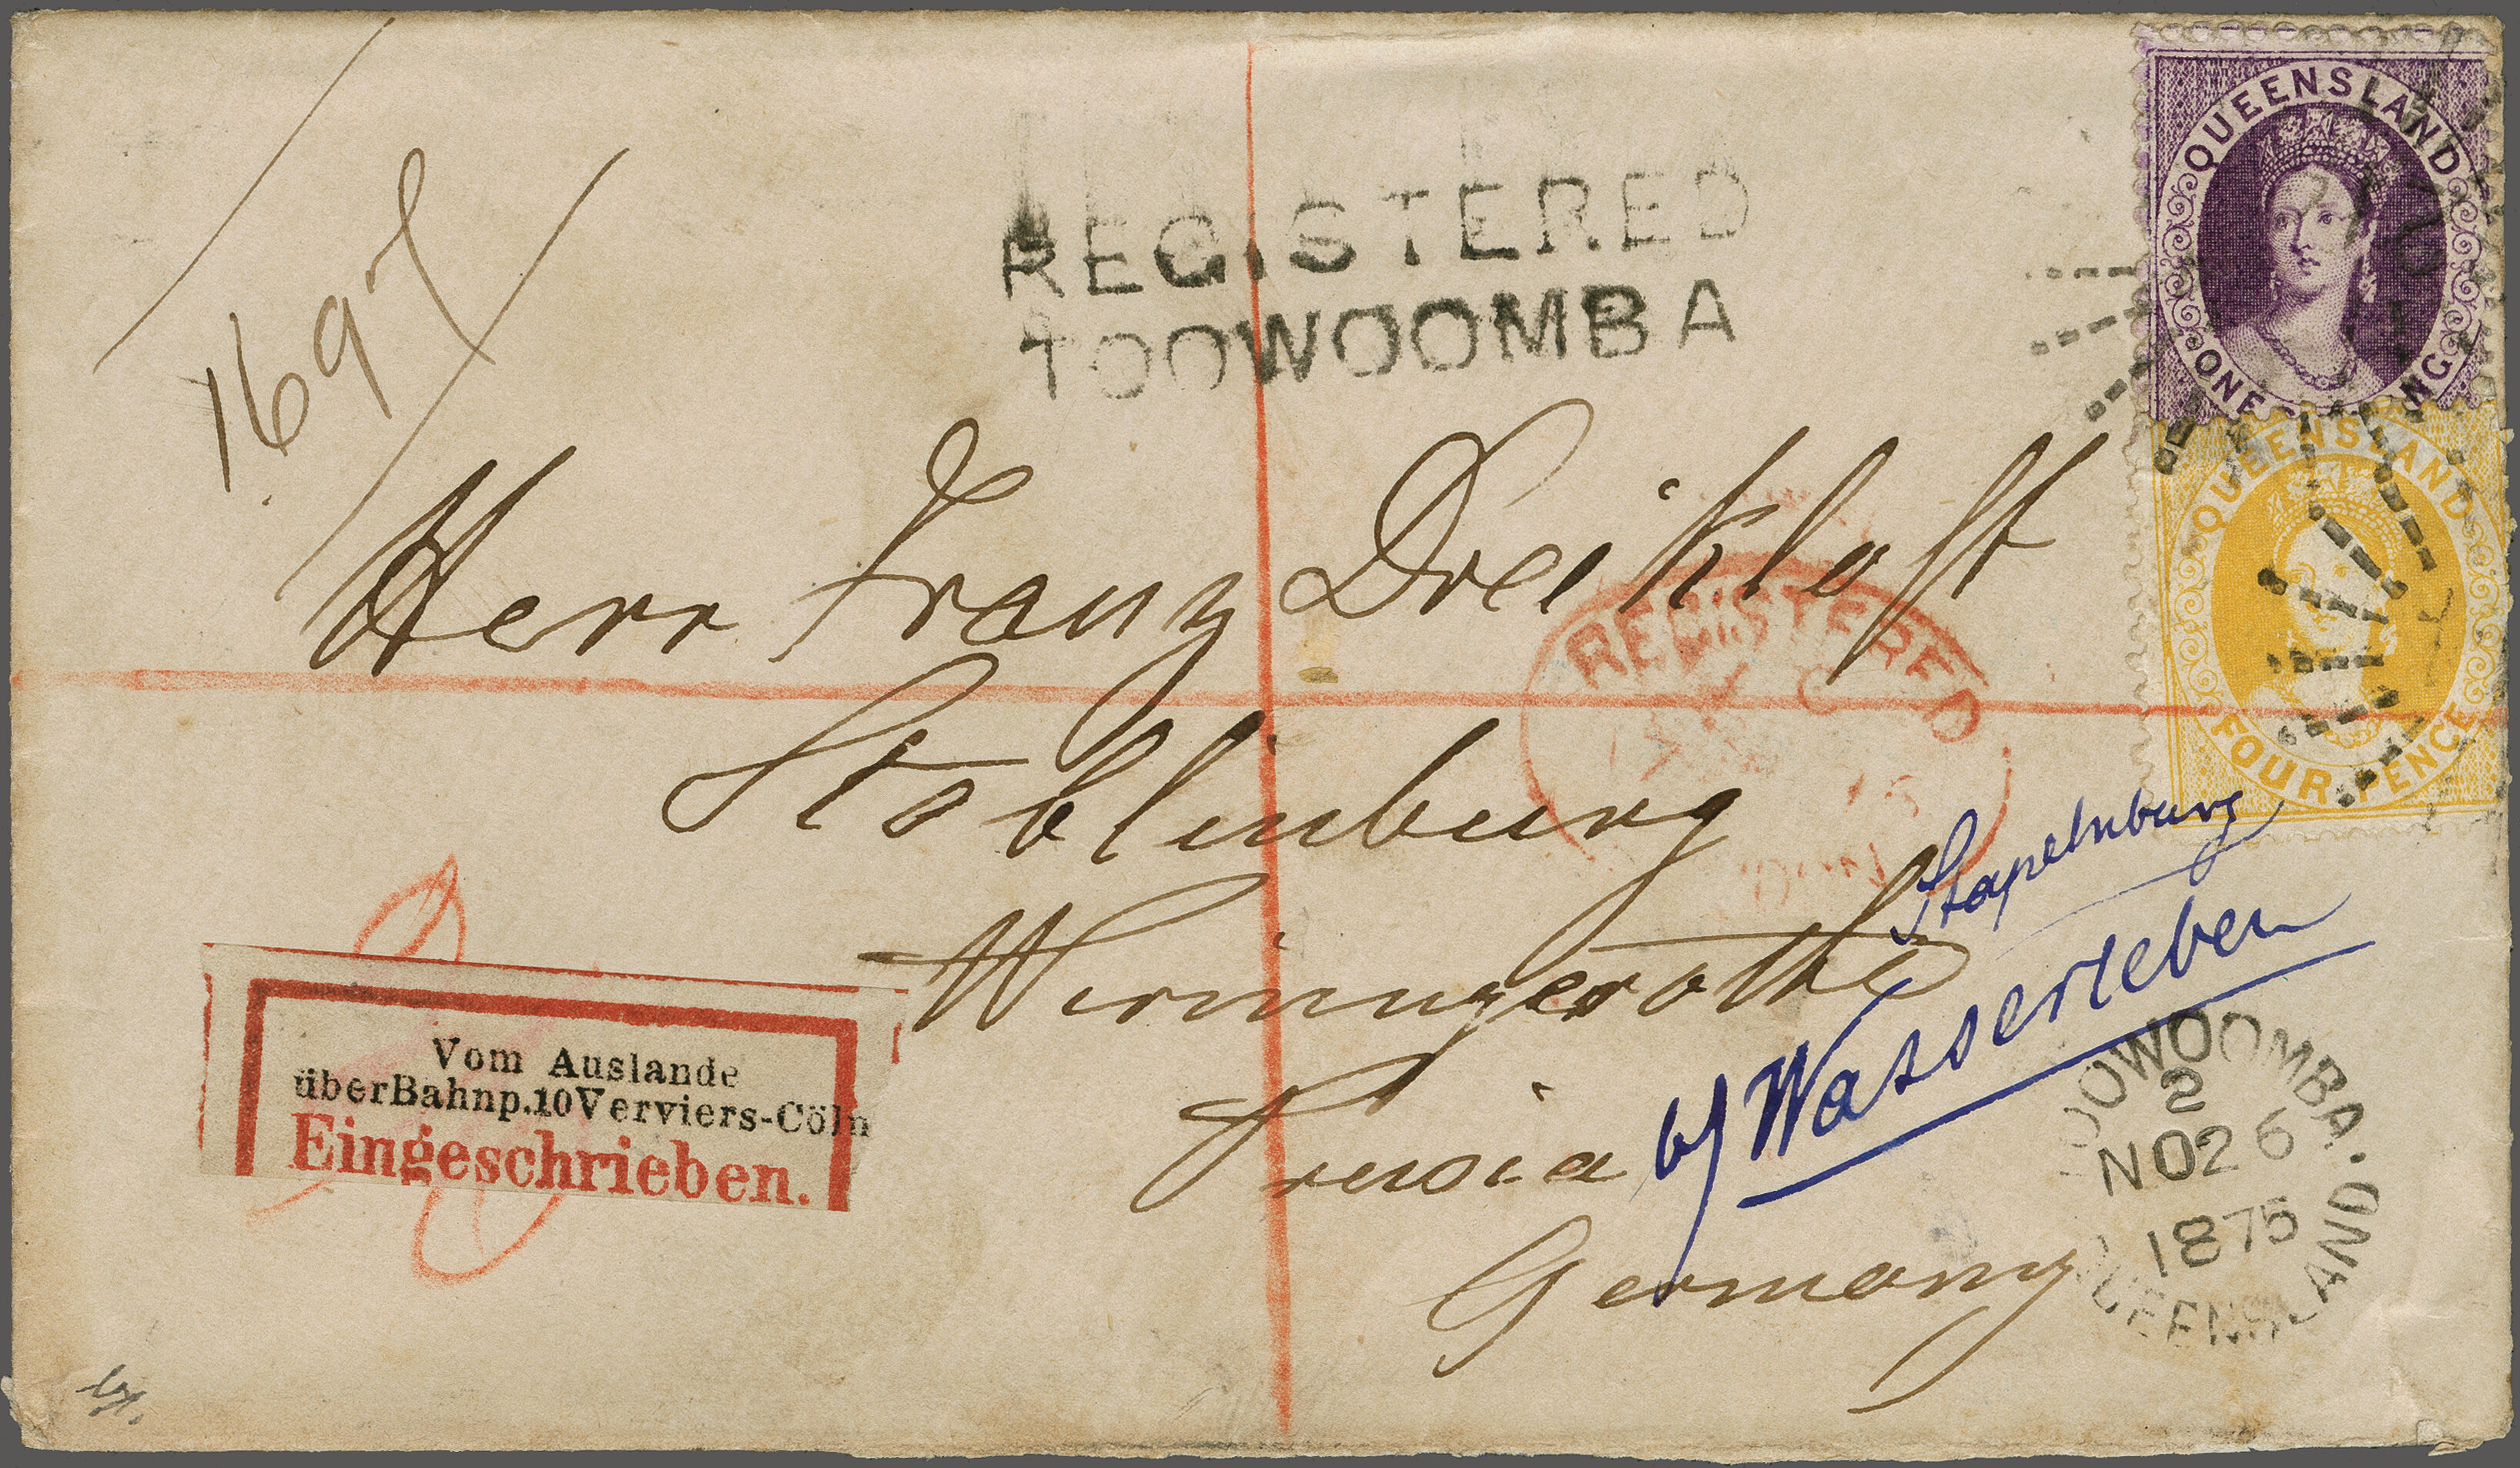 1697
REGISTERED
TOOWOOMBA
QUEENSLAND
ONE
QUEENSLAND
FOUR PENCE
Herr Franz Dreikloft
REGISTERED
Stoblinburg
Stapelnburg
Werningerothe
b/ Wasserleben
Prussia
Germany
Vom Auslande
überBahnp.10Verviers-Cöln
Eingeschrieben.
TOOWOOMBA.
2
NO26
1875
QUEENSLAND.